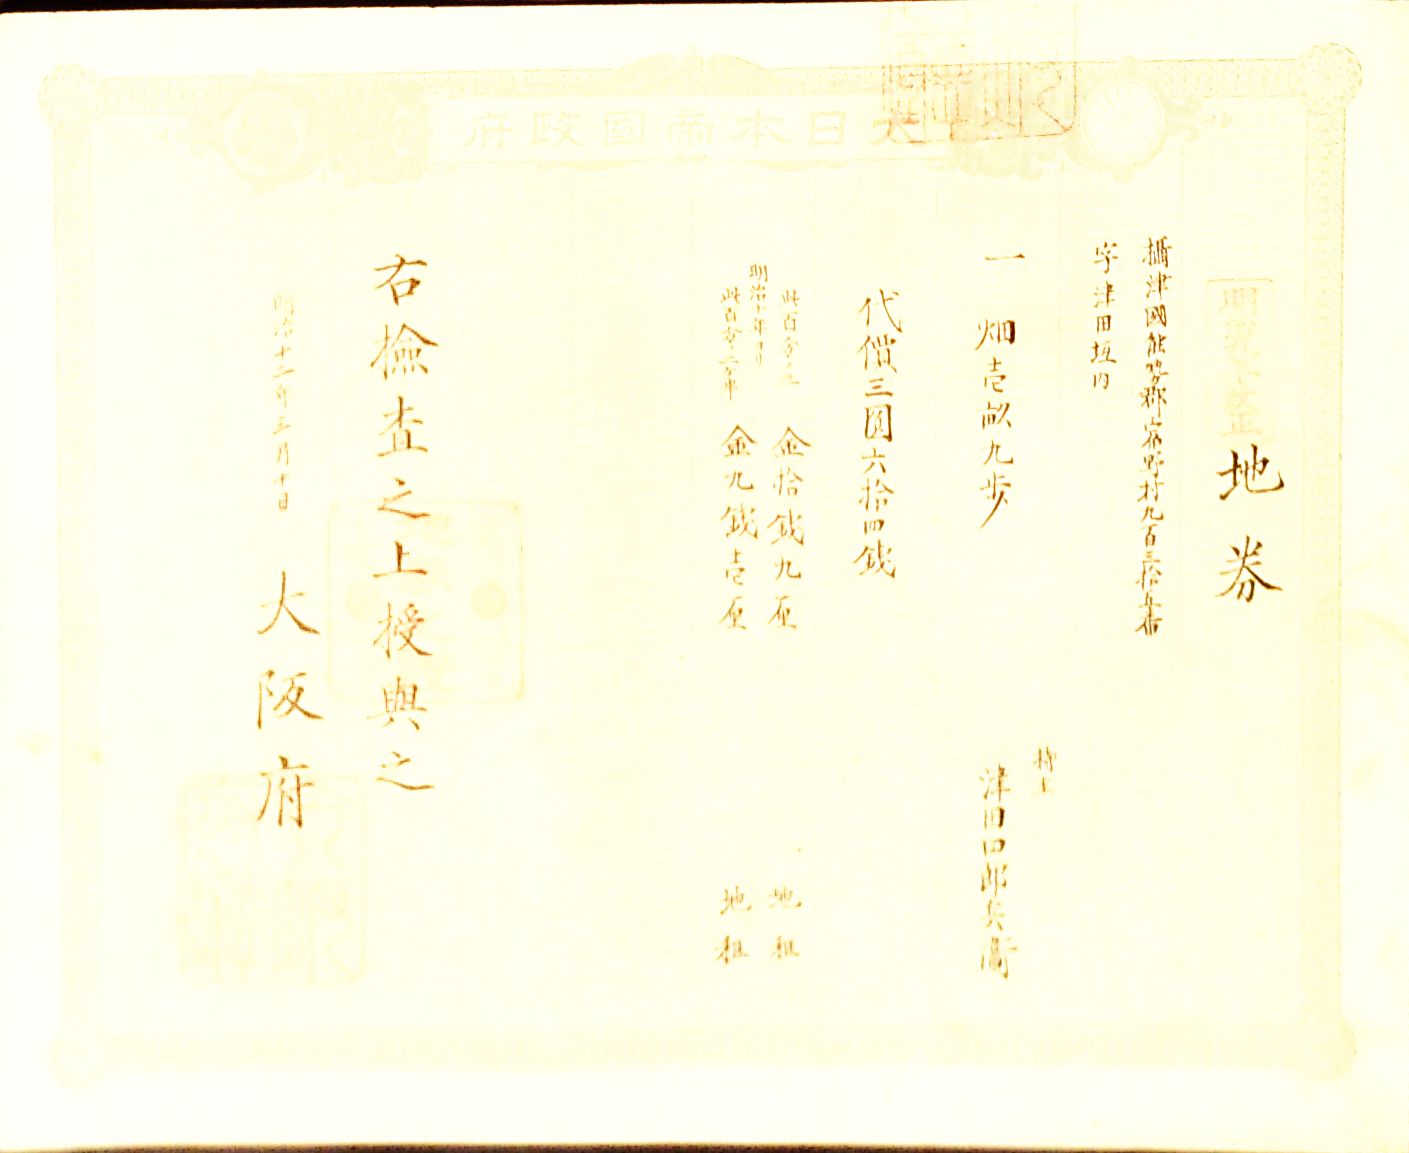 大日本帝國政府
地券
攝津國能勢郡宿野村九百三拾五番
字津田垣内
一 畑壱畝九歩
持主
津田四郎兵衛
代價三圓六拾四銭
此百分ノ三 金拾銭九厘 地租
明治十年ヨリ
此百分ノ二ケ半 金九銭壱厘 地租
右撿査之上授與之
明治十二年三月十日 大阪府